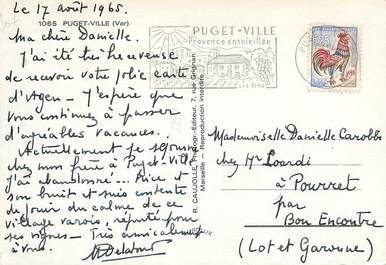 Le 17 août 1965.
1065 PUGET-VILLE (Var)
Ma chère Danielle.
J'ai été très heureuse
de recevoir votre jolie carte
d'Agen - J'espère que
vous continuez à passer
d'agréables vacances.
Actuellement je séjourne
chez mon frère à Puget-Ville
J'ai abandonné Nice et
son bruit et suis contente
de jouir du calme de ce
village varois, réputé pour
ses vignes - Très amicalement
à vous.
F. R. CAUJOLLE, Photogr.-Editeur, 7, rue Grignan
Marseille - Reproduction interdite
PUGET-VILLE
Provence ensoleillée
ses Vins
Mademoiselle Danielle
chez Mr
à Pourret
par
Bon Encontre
(Lot et Garonne)